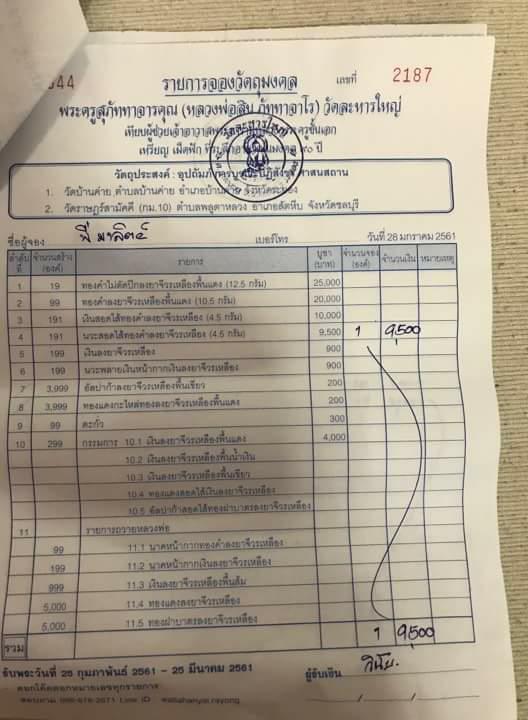 044
รายการจองวัตถุมงคล เลขที่ 2187
พระครูสุภัททาจารคุณ (หลวงพ่อสิน ภัททาจาโร) วัดละหารใหญ่
เทียบผู้ช่วยเจ้าอาวาสพระอารามหลวง
เหรียญ เม็ดฟัก ๙๐ ปี
วัตถุประสงค์ : อุปถัมภ์การบูรณะปฏิสังขรณ์ศาสนสถาน
1. วัดบ้านค่าย ตำบลบ้านค่าย อำเภอบ้านค่าย จังหวัดระยอง
2. วัดราษฎร์สามัคคี (กม.10) ตำบลพลูตาหลวง อำเภอสัตหีบ จังหวัดชลบุรี
ชื่อผู้จอง พี่ เบอร์โทร วันที่ 28 มกราคม 2561
ลำดับที่ จำนวนสร้าง (องค์) รายการ บูชา (บาท) จำนวนจอง (องค์) จำนวนเงิน หมายเหตุ
1 19 ทองคำไม่ตัดปีกลงยาจีวรเหลืองพื้นแดง (12.5 กรัม) 25,000
2 99 ทองคำลงยาจีวรเหลืองพื้นแดง (10.5 กรัม) 20,000
3 191 เงินสอดไส้ทองคำลงยาจีวรเหลือง (4.5 กรัม) 10,000
4 191 นวะสอดไส้ทองคำลงยาจีวรเหลือง (4.5 กรัม) 9,500 1 9,500
5 199 เงินลงยาจีวรเหลือง 900
6 199 นวะพลายเงินหน้ากากเงินลงยาจีวรเหลือง 900
7 3,999 อัลปาก้าลงยาจีวรเหลืองพื้นเขียว 200
8 3,999 ทองแดงกะไหล่ทองลงยาจีวรเหลืองพื้นแดง 200
9 99 ตะกั่ว 300
10 299 กรรมการ 10.1 เงินลงยาจีวรเหลืองพื้นแดง 4,000
10.2 เงินลงยาจีวรเหลืองพื้นน้ำเงิน
10.3 เงินลงยาจีวรเหลืองพื้นเขียว
10.4 ทองแดงสอดไส้เงินลงยาจีวรเหลือง
10.5 อัลปาก้าสอดไส้ทองฝาบาตรลงยาจีวรเหลือง
11 รายการถวายหลวงพ่อ
99 11.1 นาคหน้ากากทองคำลงยาจีวรเหลือง
199 11.2 นวะหน้ากากเงินลงยาจีวรเหลือง
999 11.3 เงินลงยาจีวรเหลืองพื้นส้ม
5,000 11.4 ทองแดงลงยาจีวรเหลือง
5,000 11.5 ทองฝาบาตรลงยาจีวรเหลือง
รวม 1 9,500
รับพระวันที่ 25 กุมภาพันธ์ 2561 - 25 มีนาคม 2561 ผู้รับเงิน วินัย.
ตอกโค้ดตอกหมายเลขทุกรายการ